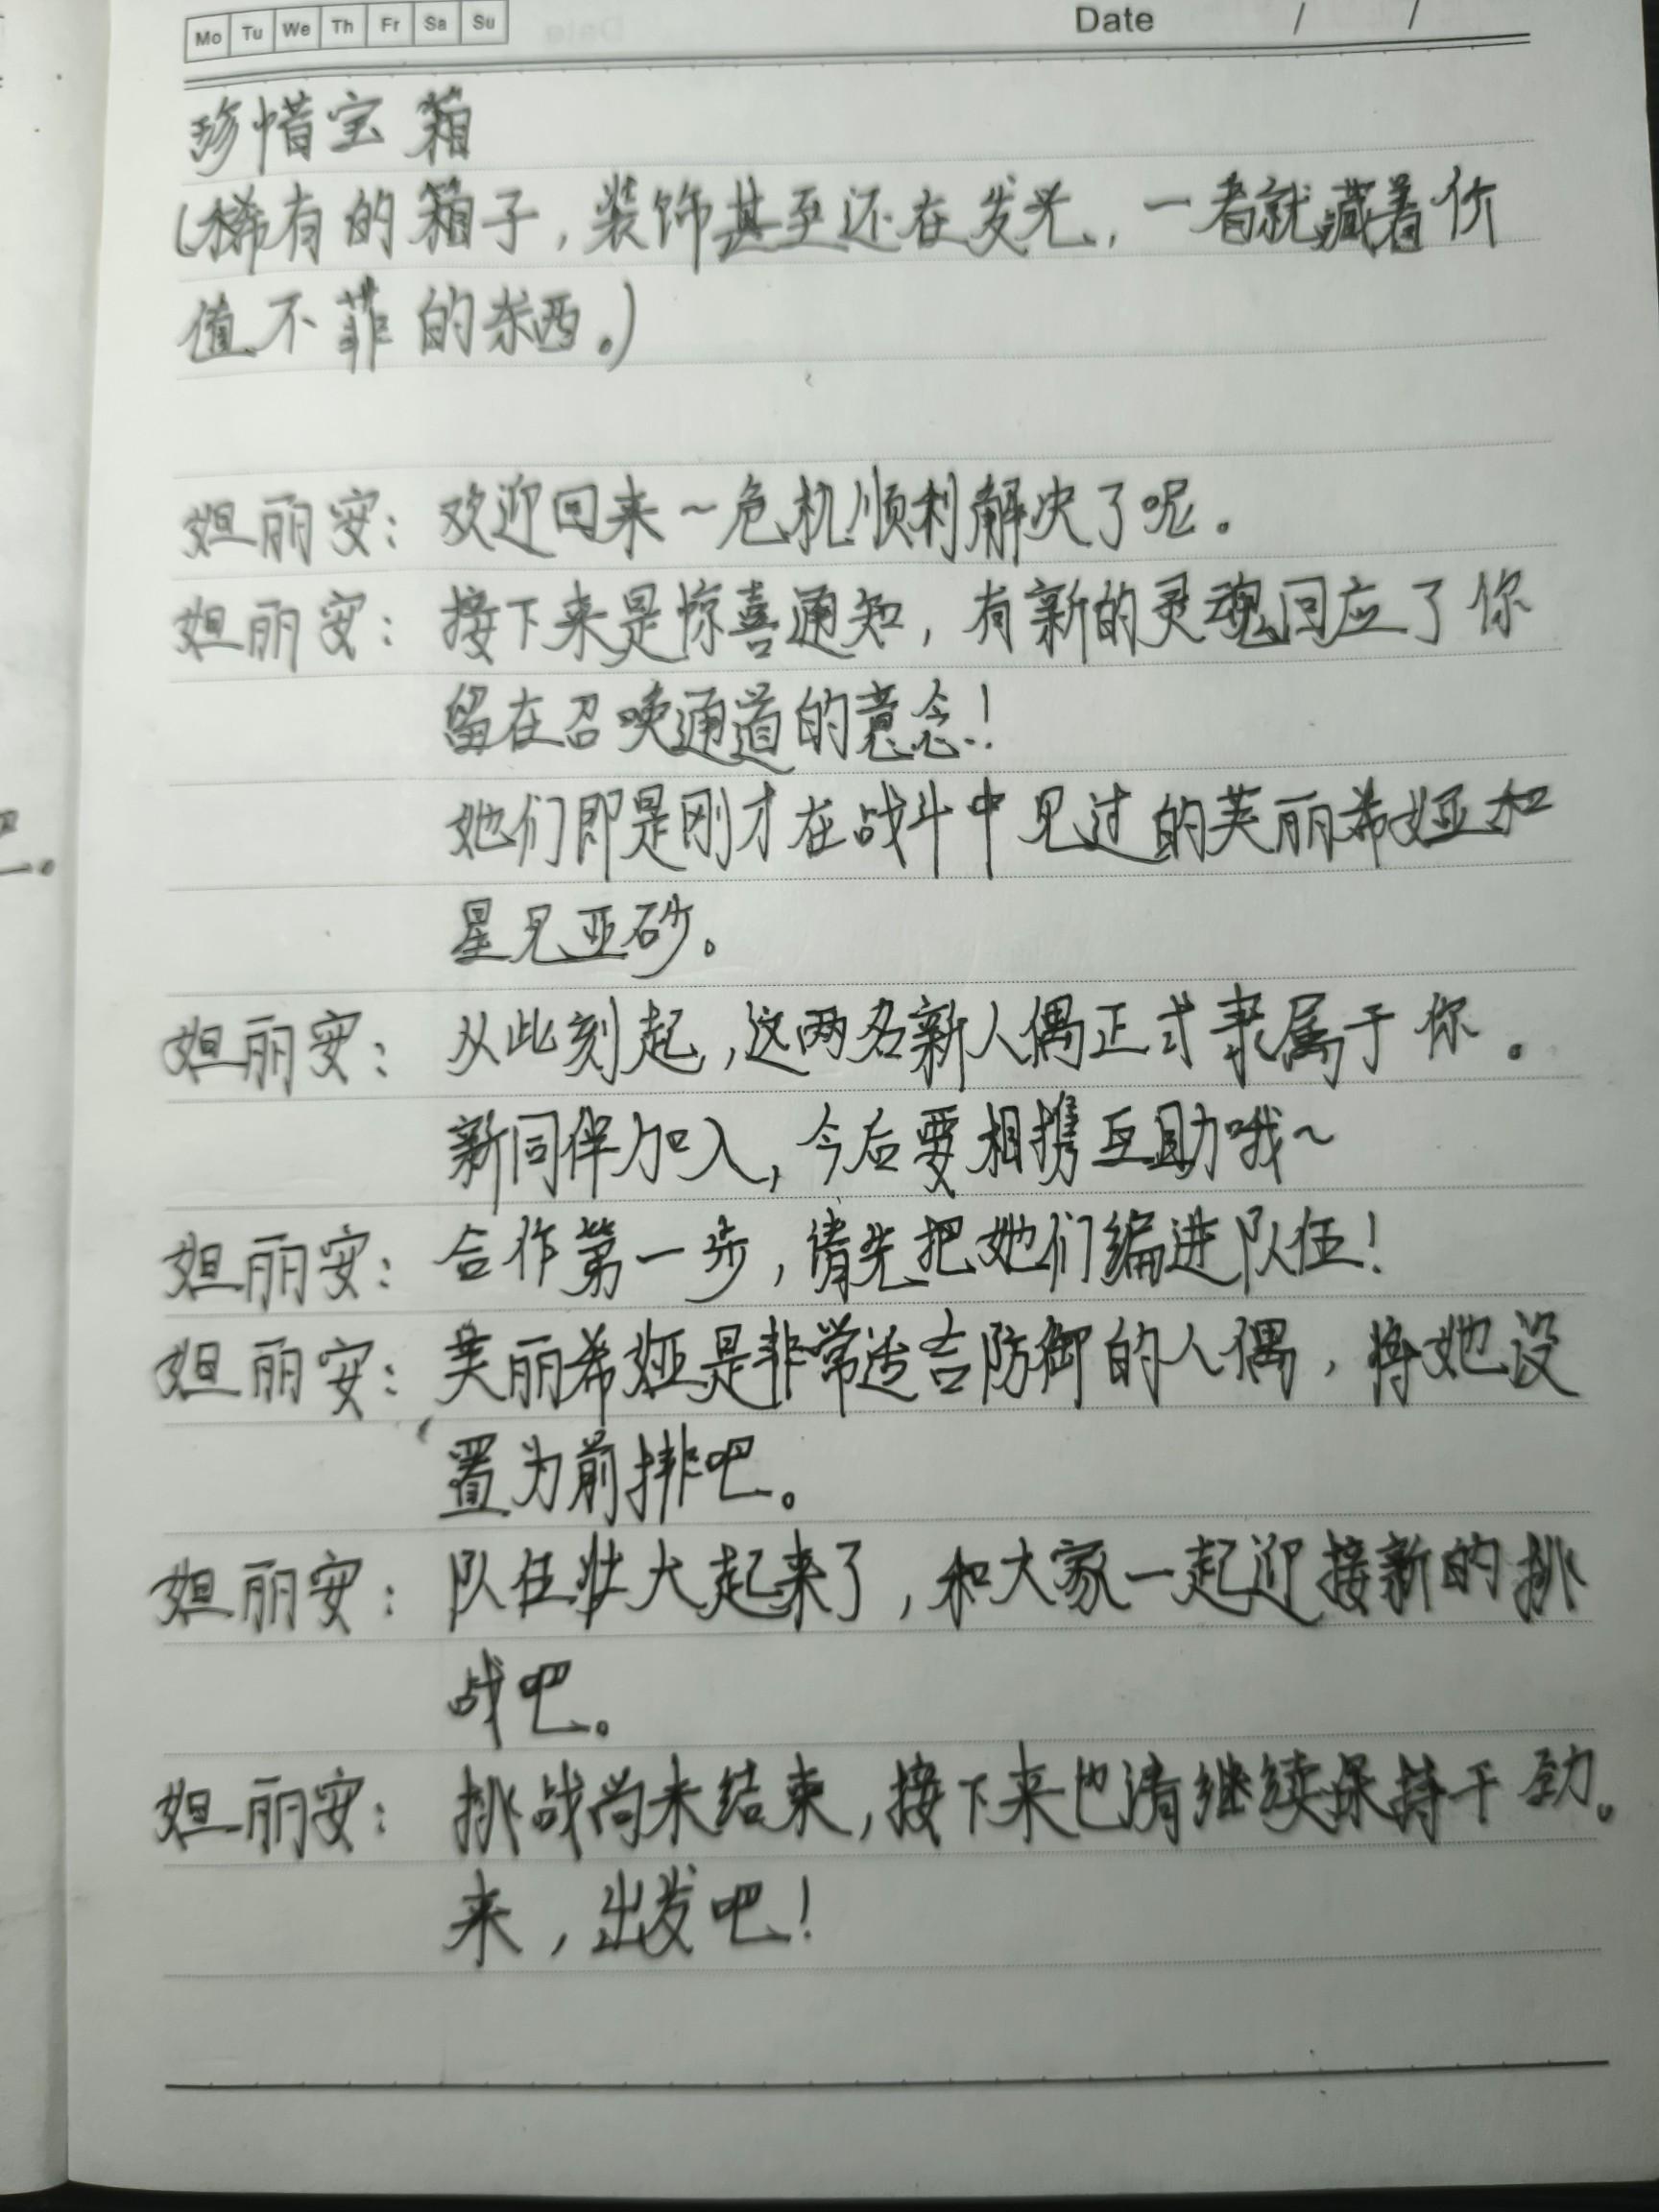 Mo Tu We Th Fr Sa Su Date / /
珍惜宝箱
(稀有的箱子,装饰甚至还在发光,一看就藏着价
值不菲的东西。)
妲丽安:欢迎回来~危机顺利解决了呢。
妲丽安:接下来是惊喜通知,有新的灵魂回应了你
留在召唤通道的意念!
她们即是刚才在战斗中见过的芙丽希娅和
星见亚砂。
妲丽安:从此刻起,这两名新人偶正式隶属于你。
新同伴加入,今后要相携互助哦~
妲丽安:合作第一步,请先把她们编进队伍!
妲丽安:芙丽希娅是非常适合防御的人偶,将她设
置为前排吧。
妲丽安:队伍壮大起来了,和大家一起迎接新的挑
战吧。
妲丽安:挑战尚未结束,接下来也请继续保持干劲。
来,出发吧!